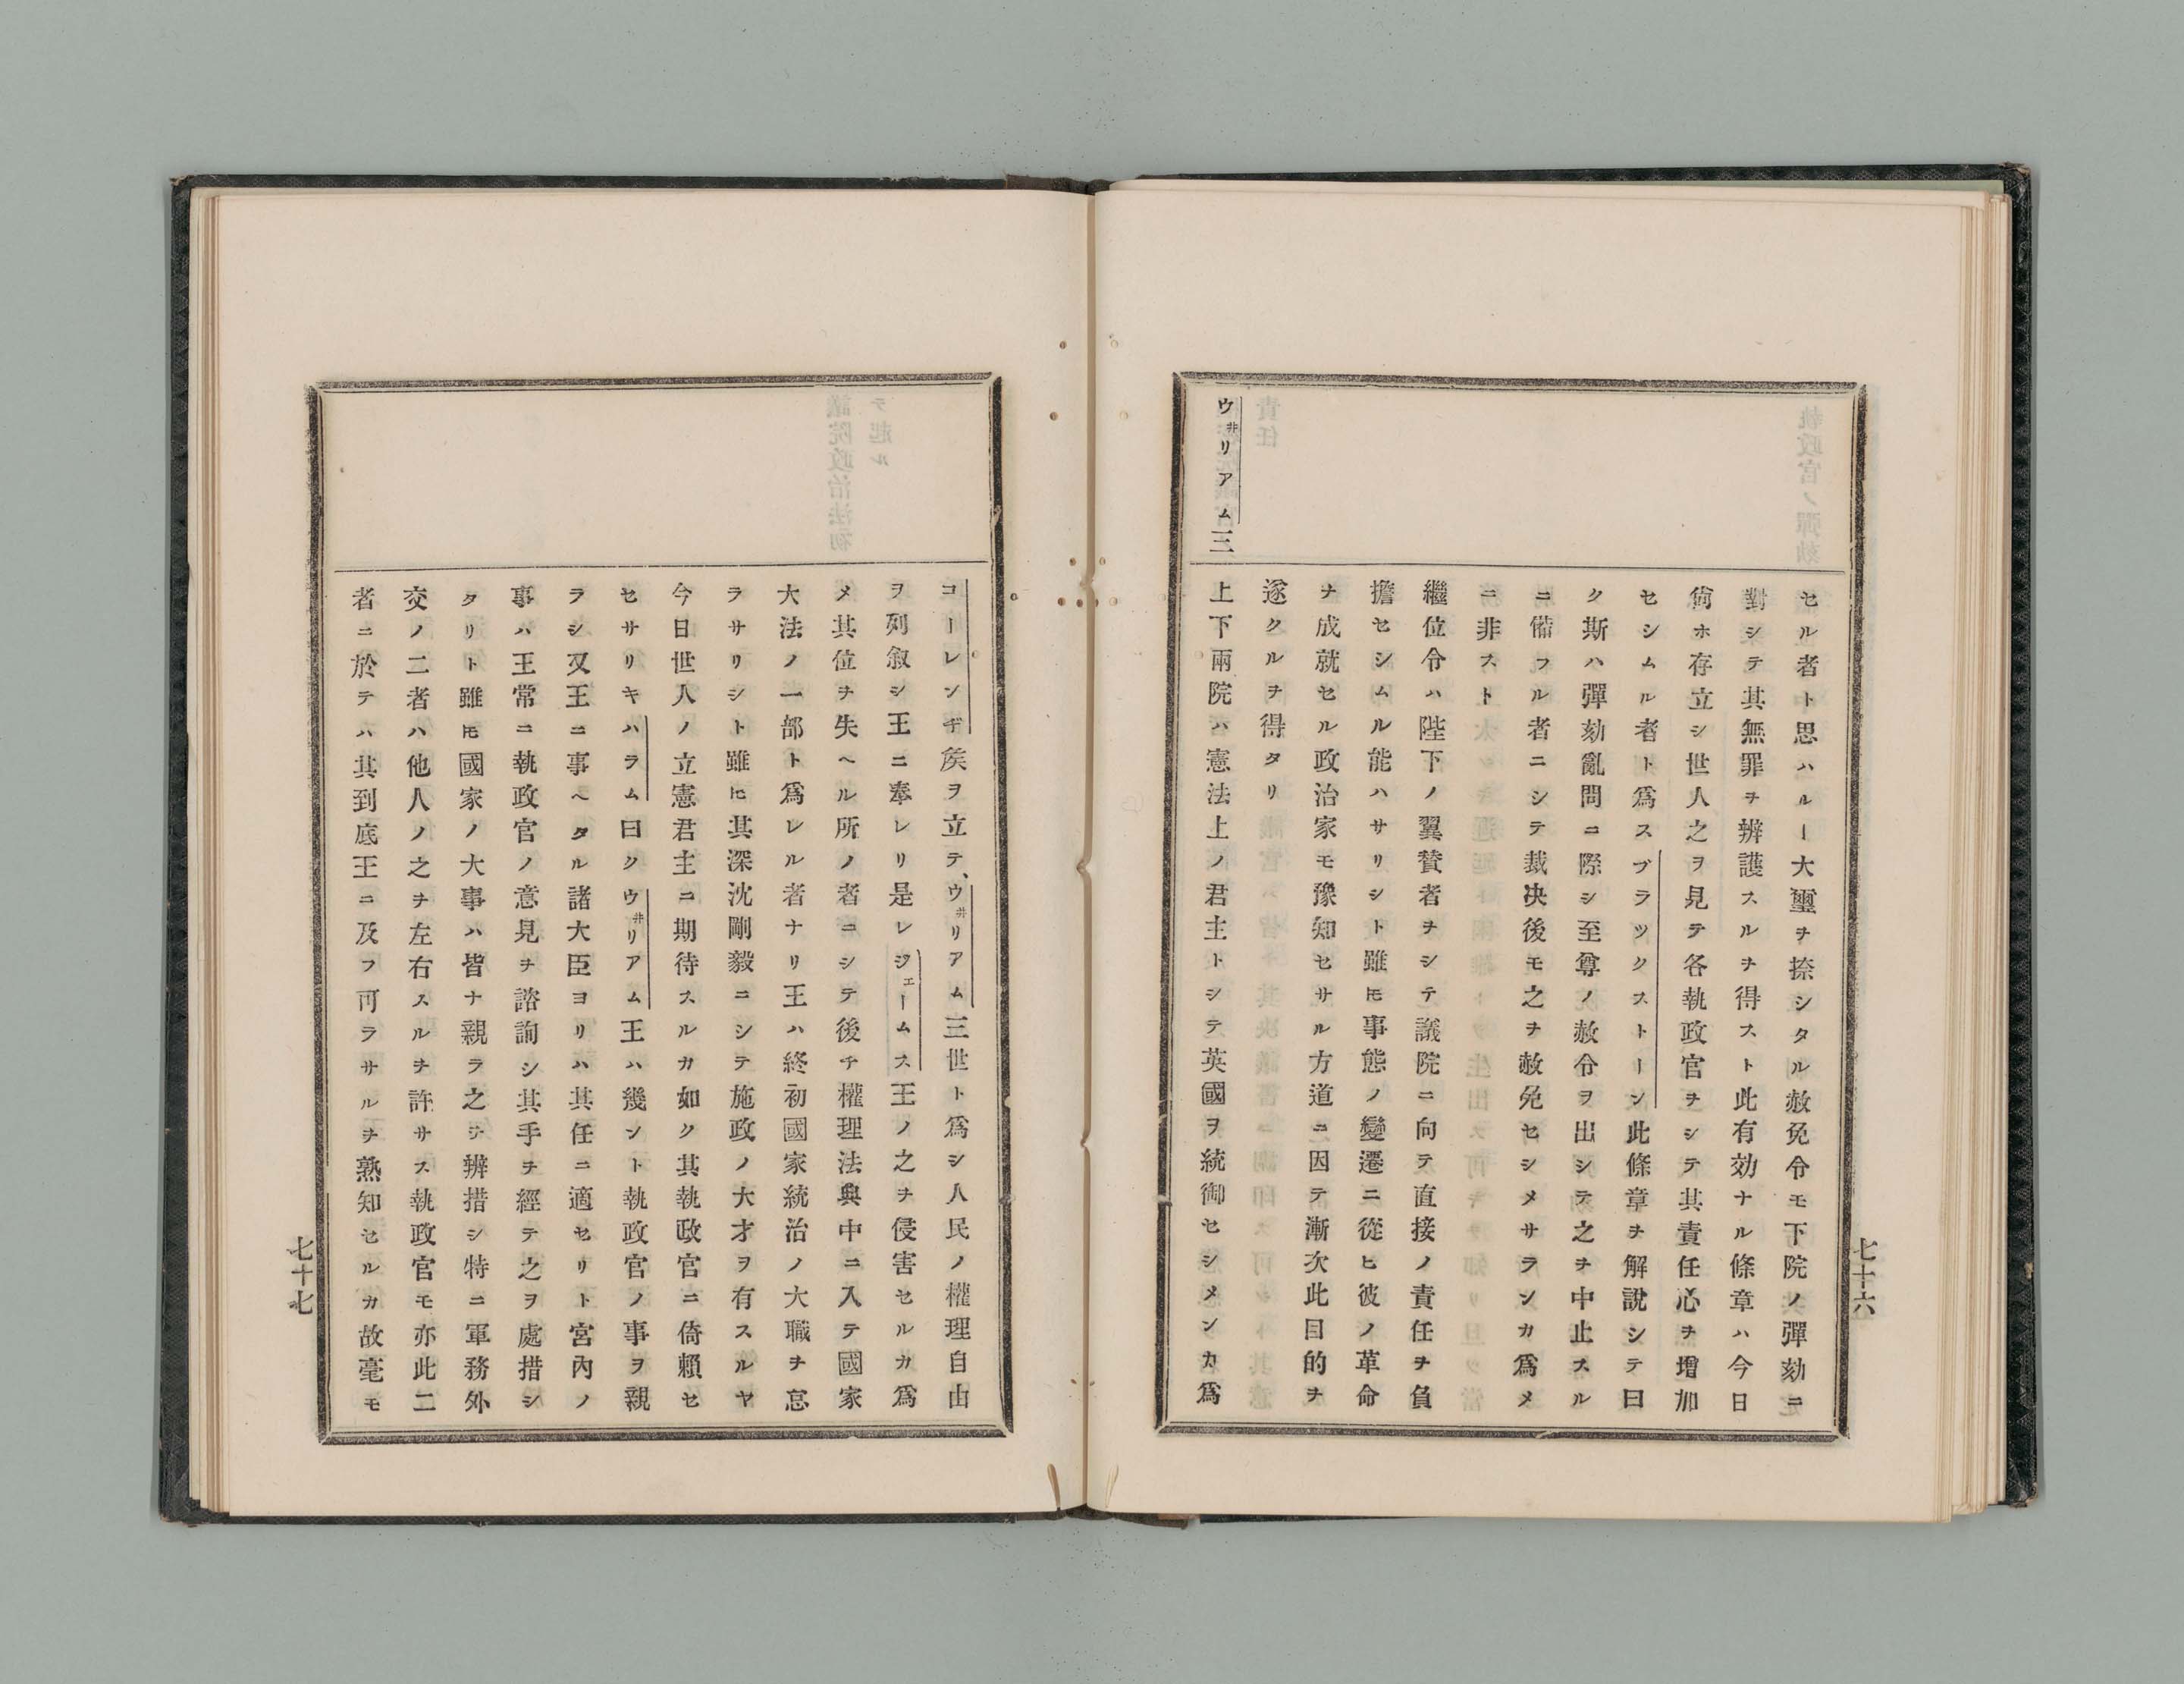 七十六
セル者ト思ハルー大璽ヲ捺シタル赦免令モ下院ノ彈劾ニ
對シテ其無罪ヲ辨護スルヲ得スト此有効ナル條章ハ今日
尙ホ存立シ世人之ヲ見テ各執政官ヲシテ其責任心ヲ增加
セシムル者ト爲スブラツクストーン此條章ヲ解說シテ曰
ク斯ハ彈劾亂問ニ際シ至尊ノ赦令ヲ出シテ之ヲ中止スル
ニ備フル者ニシテ裁决後モ之ヲ赦免セシメサランカ爲メ
ニ非スト
繼位令ハ陛下ノ翼賛者ヲシテ議院ニ向テ直接ノ責任ヲ負
擔セシムル能ハサリシト雖𪜈事態ノ變遷ニ從ヒ彼ノ革命
ヲ成就セル政治家モ豫知セサル方道ニ因テ漸次此目的ヲ
遂クルヲ得タリ
ウ井リアム三
上下兩院ハ憲法上ノ君主トシテ英國ヲ統御セシメンカ爲
コーレンヂ矦ヲ立テ、ウ井リアム三世ト爲シ人民ノ權理自由
ヲ列敘シ王ニ奉レリ是レジエームス王ノ之ヲ侵害セルカ爲
メ其位ヲ失ヘル所ノ者ニシテ後チ權理法典中ニ入テ國家
大法ノ一部ト爲レル者ナリ王ハ終初國家統治ノ大職ヲ怠
ラサリシト雖𪜈其深沈剛毅ニシテ施政ノ大才ヲ有スルヤ
今日世人ノ立憲君主ニ期待スルカ如ク其執政官ニ倚賴セ
セサリキハラム曰クウ井リアム王ハ幾ント執政官ノ事ヲ親
ラシ又王ニ事ヘタル諸大臣ヨリハ其任ニ適セリト宮內ノ
事ハ王常ニ執政官ノ意見ヲ諮詢シ其手ヲ經テ之ヲ處措シ
タリト雖𪜈國家ノ大事ハ皆ナ親ラ之ヲ辨措シ特ニ軍務外
交ノ二者ハ他人ノ之ヲ左右スルヲ許サス執政官モ亦此二
者ニ於テハ其到底王ニ及フ可ラサルヲ熟知セルカ故毫モ
七十七